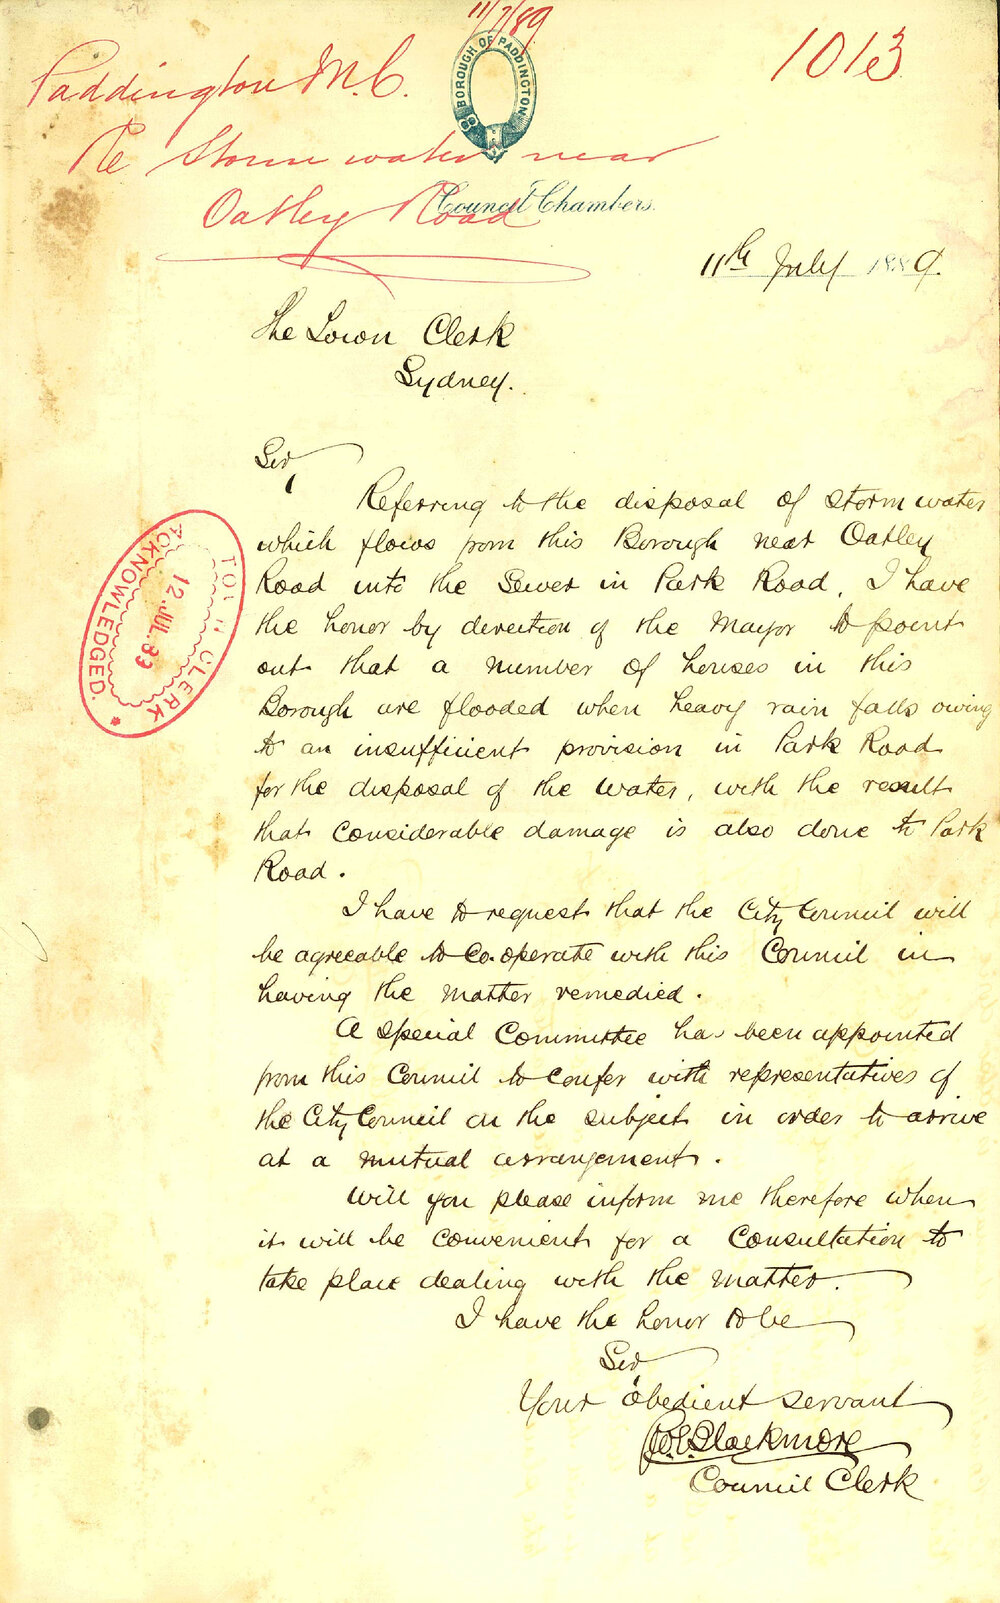 11/7/89
1013
Paddington M.C.
Re Storm water near
Oatley Road
BOROUGH OF PADDINGTON
Council Chambers.
11th July 1889.
The Town Clerk
Sydney.
Sir,
Referring to the disposal of storm water
which flows from this Borough near Oatley
Road into the Sewer in Park Road, I have
the honor by direction of the Mayor to point
out that a number of houses in this
Borough are flooded when heavy rain falls owing
to an insufficient provision in Park Road
for the disposal of the water, with the result
that considerable damage is also done to Park
Road.
I have to request that the City Council will
be agreeable to co-operate with this Council in
having the matter remedied.
A special Committee has been appointed
from this Council to confer with representatives of
the City Council on the subject in order to arrive
at a mutual arrangement.
Will you please inform me therefore when
it will be convenient for a Consultation to
take place dealing with the matter.
I have the honor to be
Sir,
Your obedient servant
Blackmore
Council Clerk
TOWN CLERK
ACKNOWLEDGED.
12.JUL.89